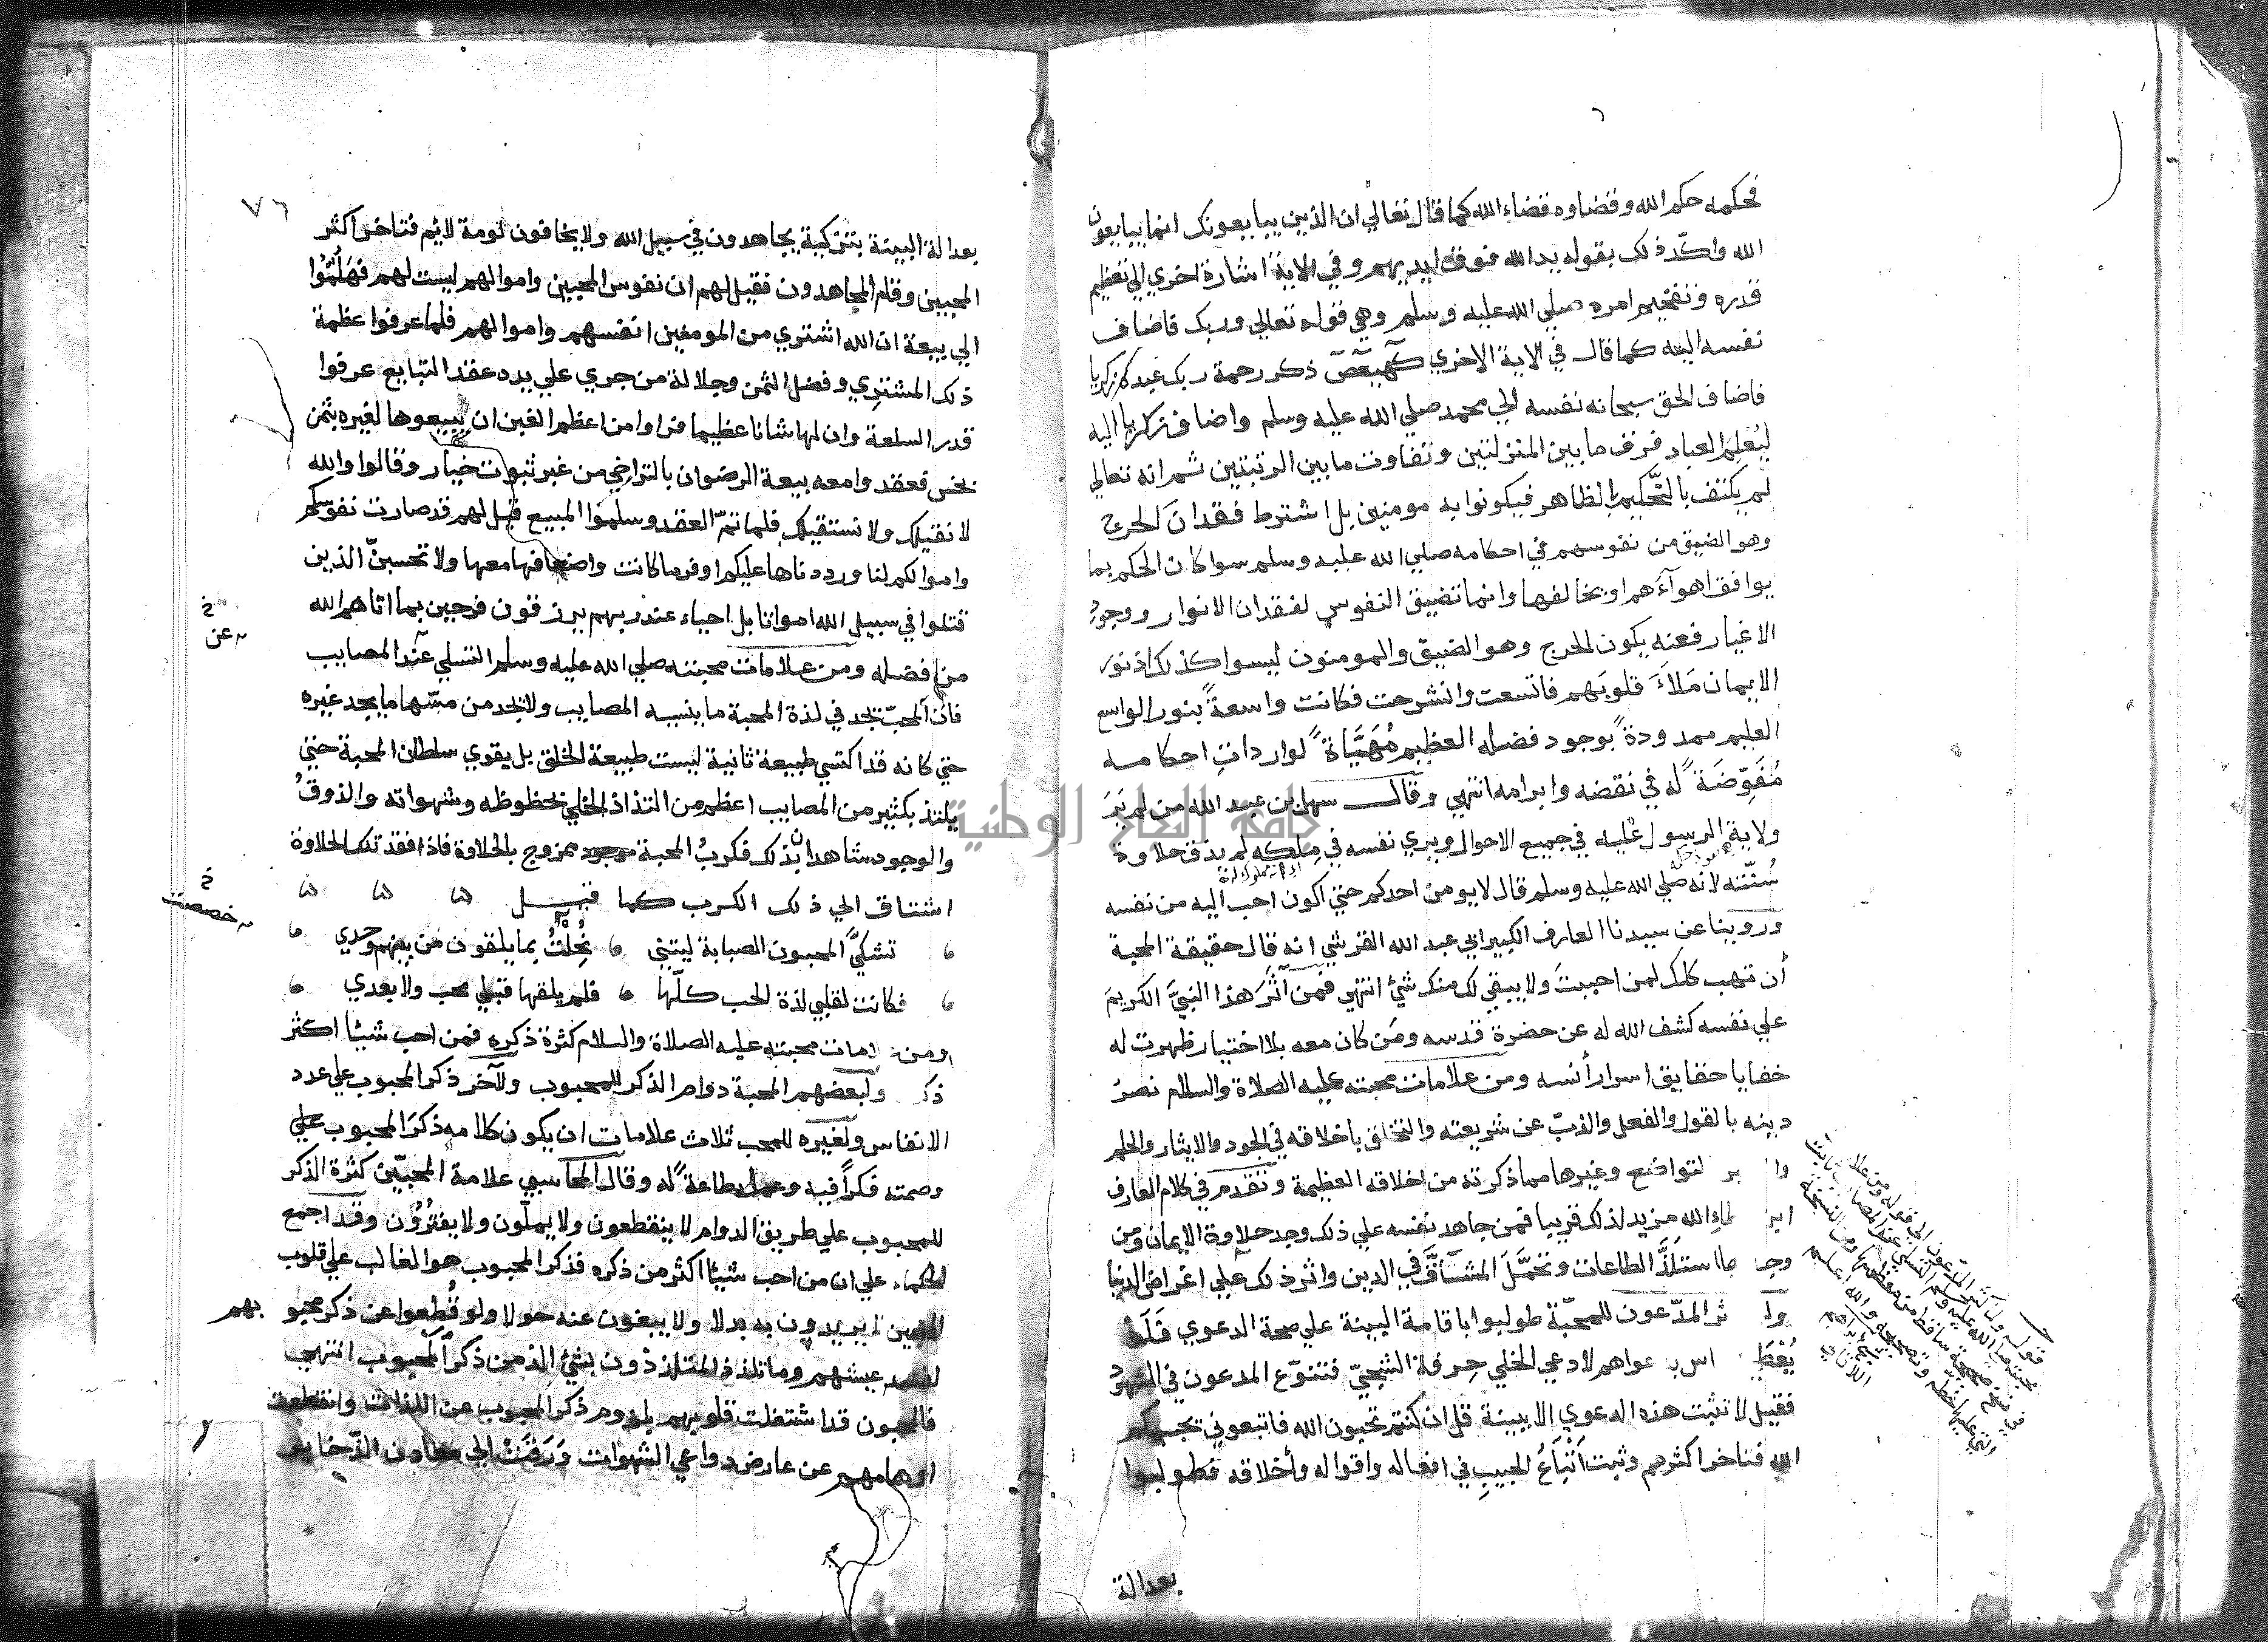 فحكمه حكم الله وقضاوه قضاء الله كما قال تعالي ان الذين يبايعونك انما يبايعون
الله واكّد ذلك بقوله يد الله فوق ايديهم وفي الاية اشارة اخري الي تعظيم
قدره وتفخيم امره صلي الله عليه وسلم وهي قوله تعالي وربك فاضاف
نفسه اليه كما قال في الاية الاخري كهيعص ذكر رحمة ربك عبده زكريا
فاضاف الحق سبحانه نفسه الي محمد صلي الله عليه وسلم واضاف زكريا اليه
ليُعلِم العباد فرف ما بين المنزلتين وتفاوت ما بين الرتبتين ثم انه تعالي
لم يكتف بالتّحكيم الظاهر فيكونوا به مومنين بل اشترط فقدان الحرج
وهو الضيق من نفوسهم في احكامه صلي الله عليه وسلم سوا كان الحكم بما
يوافق اهوآءهم او يخالفها وانما تضيق النفوس لفقدان الانوار ووجودِ
الاغيار فعنه يكون الحرج وهو الضيق والمومنون ليسوا كذلك اذ نور
الايمان مَلأَ قلوبَهم فاتسعت وانشرحت فكانت واسعةً بنور الواسع
العليم ممدودةً بوجود فضله العظيم مُهَيَّاةً لواردات احكامه
مُفَوِّضَةً له في نقضه وابرامه انتهي وقال سهل بن عبد الله من لم يَرَ
ولاية الرسول عليه في جميع الاحوال ويري نفسه في مِلكه لم يذق حلاوة
سُنّته لانه صلي الله عليه وسلم قال لا يومن احدكم حتي اكون احب اليه من نفسه
وروينا عن سيدنا العارف الكبير ابي عبد الله القرشي انه قال حقيقة المحبة
أن تهب كلك لمن احببتَ ولا يبقي لك منك شئ انتهي فمن آثَرَ هذا النبيَّ الكريمَ
علي نفسه كشف الله له عن حضرة قدسه ومَن كان معه بلا اختيار ظهرت له
خفايا حقايق اسرار أنسه ومن علامات محبته عليه الصلاة والسلام نصرُ
دينه بالقول والفعل والذبّ عن شريعته والتخلق باخلاقه في الجود والايثار والحلم
وا بر لتواضع وغيرها مما ذكرته من اخلاقه العظيمة وتقدم في كلام العارف
ابن طاءِ الله مزيد لذلك قريبا فمن جاهد نفسه علي ذلك وجد حلاوة الايمان ومن
وجد ها استلذَّ الطاعات وتحمَّلَ المشاقَّ في الدين واثر ذلك علي اغراض الدنيا
ولـ ثر المدّعون للمحبّة طولبوا باقامة البينة علي صحة الدعوي فَلَو
يُعْطَي اس بـ عواهم لادعي الخلي حِرفة الشجيّ فتنوّع المدعون في الشهود
فقيل لا تثبت هذه الدعوي الا ببينة قل ان كنتم تحبون الله فاتبعوني تحببكم
الله فتاخر اكثرهم وثبت اَتْبَاعُ الحبيبِ في افعاله واقواله وأخلاقه فطولبوا
بعدالة
قوله ولما كثر المدّعون الي قوله ومن علامات
محبته صلي الله عليه وسلم التسلي عند المصايب
٧٦
بعدالة البينة بتزكيبة يجاهدون في سبيل الله ولا يخافون لومة لائم فتاخر اكثر
المحبين وقام المجاهدون فقيل لهم ان نفوس المحبين واموالهم ليست لهم فهَلُمُّوا
الي بيعة ان الله اشتري من المومنين انفسهم واموالهم فلما عرفوا عظمة
ذلك المشتري وفضل الثمن وجلالة من جري علي يده عقد التبايع عرفوا
قدر السلعة وان لها شانا عظيما فراوا من اعظم الغبن ان يبيعوها لغيره بثمن
بخس فعقدوا معه بيعة الرضوان بالتراضي من غير ثبوت خيار وقالوا والله
لا نقيلك ولا نستقيلك فلما تمّ العقد وسلموا المبيع قيل لهم قد صارت نفوسكم
واموالكم لنا ورددناها عليكم اوفر ما كانت واضعافها معها ولا تحسبنّ الذين
قتلوا في سبيل الله امواتا بل احياء عند ربهم يرزقون فرحين بما اتاهم الله
خ
عن
من فضله ومن علامات محبته صلي الله عليه وسلم التسلي عند المصايب
فان المحبّ يجد في لذة المحبة ما ينسيه المصايب ولا يجد من مسّها ما يجد غيره
حتي كانه قد اكتسي طبيعة ثانية ليست طبيعة الخلق بل يقوي سلطان المحبة حتي
يلتذ بكثير من المصايب اعظم من التذاذ الخلي بحظوظه وشهواته والذوقُ
والوجود شاهدان بذلك فكربُ المحبة موجود ممزوج بالحلاوة فاذا فقد تلك الحلاوة
خ
خصصت
اشتاق الي ذلك الكرب كما قيل
تشكيَّ المحبون الصبابة ليتني نُحِلتُ بما يلقون من بينهم وحدي
فكانت لقلبي لذة الحب كلّها فلم يلقها قبلي محب ولا بعدي
ومن لامات محبته عليه الصلاة والسلام كثرة ذكره فمن احب شيئا اكثر
ذكـ ولبعضهم المحبة دوام الذكر للمحبوب ولآخر ذكر المحبوب علي عدد
الانفاس ولغيره للمحب ثلاث علامات ان يكون كلامه ذكرَ المحبوب
وصمته فكراً فيه وعمله طاعةً له وقال المحاسبي علامة المحبّين كثرة الذكر
للمحبوب علي طريق الدوام لا ينقطعون ولا يملّون ولا يفترُوُن وقد اجمع
الحكماء علي ان من احب شيئا اكثر من ذكره فذكر المحبوب هو الغالب علي قلوب
المحبين لا يريدون به بدلا ولا يبغون عنه حولا ولو قُطعوا عن ذكر محبوبهم
لفسد عيشهم وما تلذذ المتلذذون بشئ الذ من ذكر المحبوب انتهي
فالمحبون قد اشتغلت قلوبهم بلزوم ذكر المحبوب عن اللذات وانقطعت
اوهامهم عن عارض دواعي الشهوات وَرَقَتْ الي معادن الذّخاير
جامعة النجاح الوطنية